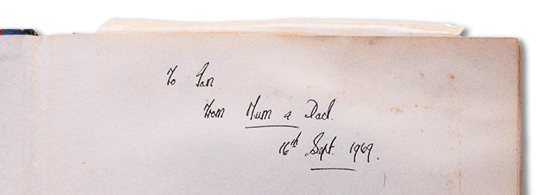 To Ian
from Mum & Dad.
16th Sept. 1969.